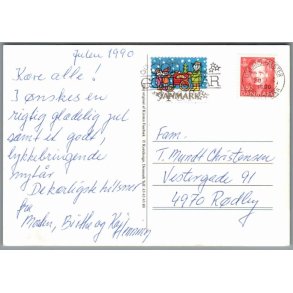 Julen 1990
Kære alle!
I ønskes en
rigtig glædelig jul
samt et godt,
lykkebringende
nytår
De kærligste hilsner
fra
Morten, Birthe og Kaj
Flemming
DANMARK
DANMARK
Fam.
T. Mundt Christensen
Vestergade 91
4970 Rødby